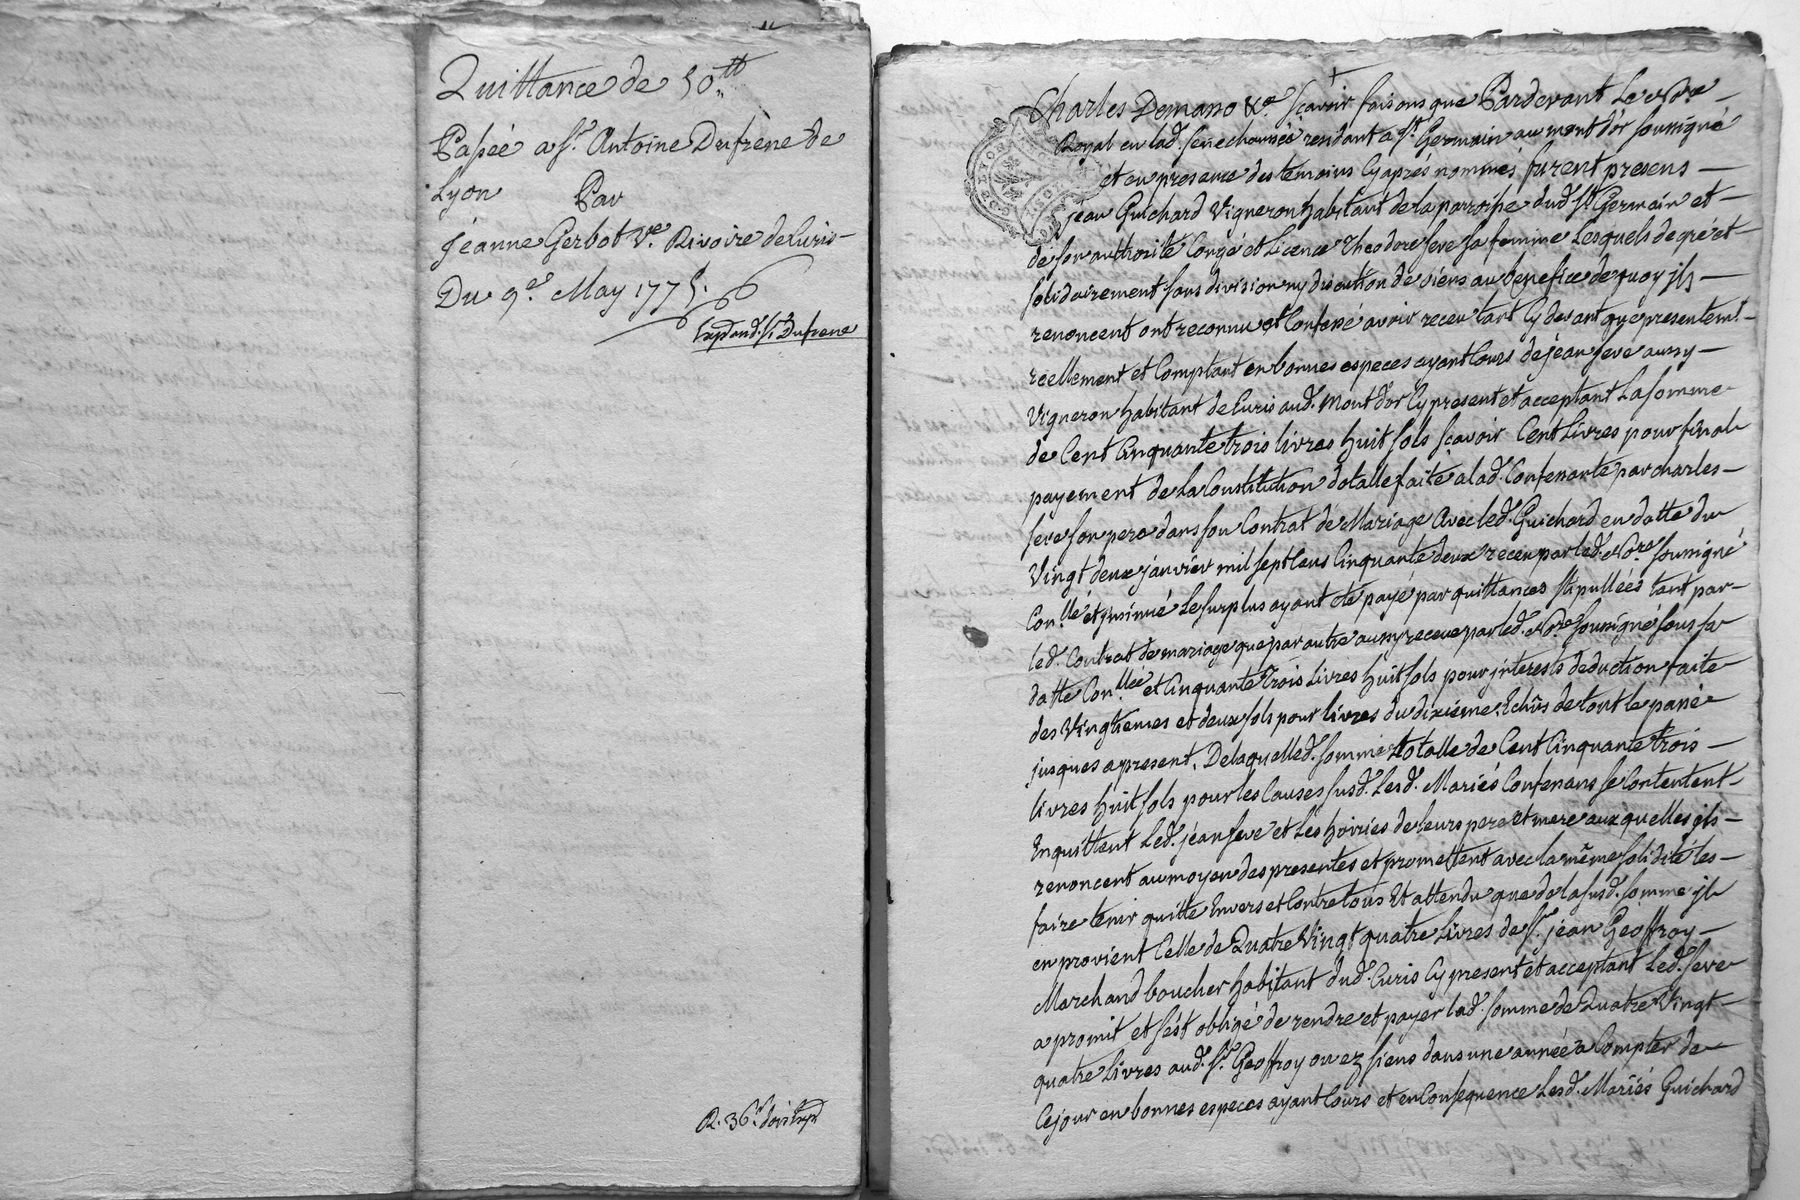 Quittance de 50.tt
Passée a Sr. Antoine Dufrene de
Lyon Par
Jeanne Gerbot Ve. Rivoire de Curis
Du 9e. May 1775.
exp. and. Sr. Dufrene
R. 36s.
Charles Demano &a. Scavoir faisons que Pardevant Le Nore
Royal en lad. Senechaussée rendant a St. Germain au mont d'or soussigné
et en presence des temoins Cyaprés nommés furent presens
jean Guichard Vigneron habitant de la parroisse dud. St Germain et
de son authorité Congé et Licence Theodore Seve Sa femme Lesquels de gré et
solidairement sans division ny discution de biens au benefice de quoy jls
renoncent ont reconnu et Confessé avoir receu tant Cy devant que presentemt.
reellement et Comptant en bonnes especes ayant Cours de jean Seve aussy
Vigneron habitant de Curis aud. Mont d'or Cy present et acceptant La somme
de Cent Cinquante trois livres huit sols Scavoir Cent Livres pour final
payement de La Constitution dotalle faite a lad. Confessante par charles
Seve son pere dans son Contrat de Mariage Avec led. Guichard en datte du
Vingt deux janvier mil sept Cens Cinquante deux receu par led. Nore soussigné
Con.llé et jnsinué Le surplus ayant été payé par quittances Stipullées tant par
led. Contrat de mariage que par autre aussy receue par led. Nore soussigné sous sa
datte Con.llée et Cinquante Trois Livres huit sols pour jnterests deduction faite
des Vingtiemes et deux sols pour livres du dixiéme Echûs de tout le passé
jusques apresent, De laquelle d. somme totalle de Cent Cinquante trois
livres huit sols pour les Causes susd. Lesd. Mariés Confessans se Contentent
Enquittent Led. jean Seve et Les hoiries de leurs pere et mere aux quelles jls
renoncent au moyen des presentes et promettent avec la même solidité les
faire tenir quitte Envers et Contre tous Et attendu que de la susd. somme jl
en provient Celle de Quatre Vingt quatre Livres de Sr. jean Geoffroy
Marchand boucher habitant dud. Curis Cy present et acceptant Led. Seve
a promit et s'est obligé de rendre et payer lad. somme de Quatre Vingt
quatre Livres aud. Sr. Geoffroy ou ez siens dans une année a Compter de
Cejour en bonnes especes ayant Cours et en Consequence Lesd. Mariés Guichard